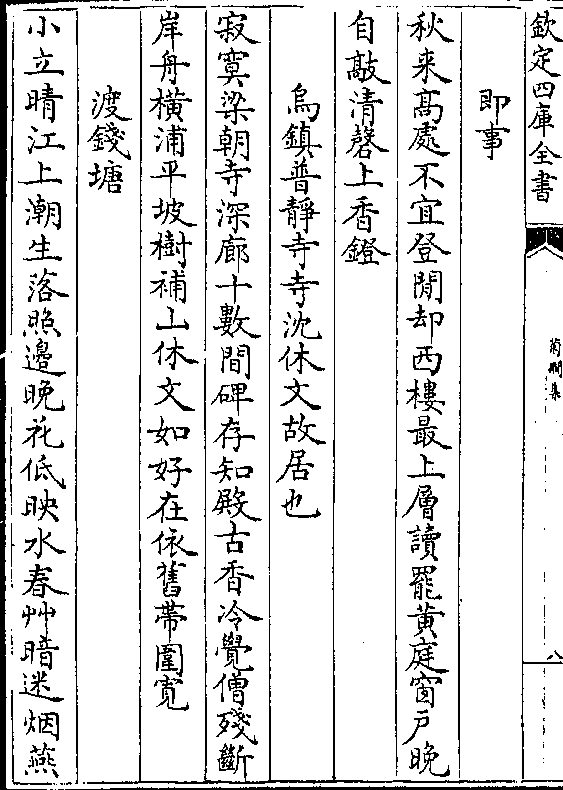 欽定四庫全書
菊磵集
八
即事
秋来髙處不宜登閒却西樓最上層讀罷黄庭窗户晚
自敲清磬上香鐙
烏鎮普靜寺寺沈休文故居也
寂寞梁朝寺深廊十數間碑存知殿古香冷覺僧殘斷
岸舟橫浦平坡樹補山休文如好在依舊帶圍寛
渡錢塘
小立晴江上潮生落照邊晚花低映水春艸暗迷烟燕